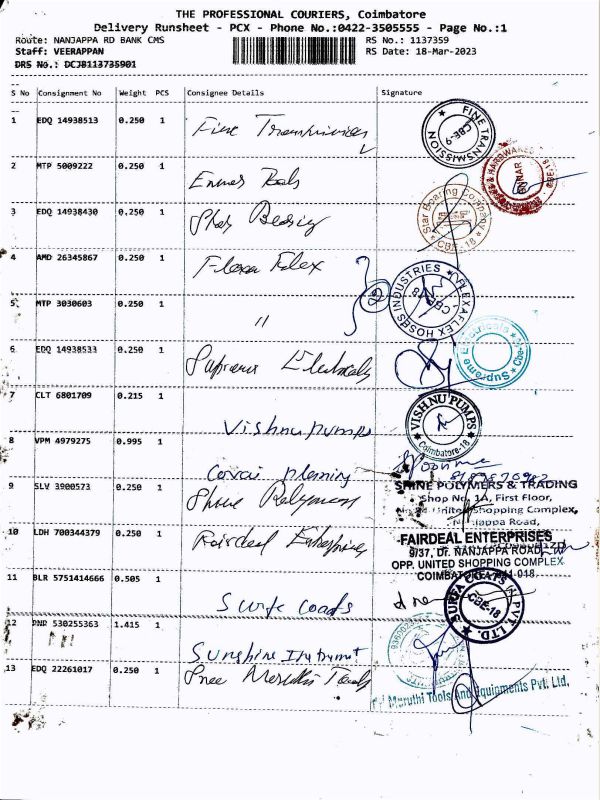 THE PROFESSIONAL COURIERS, Coimbatore
Delivery Runsheet - PCX - Phone No.:0422-3505555 - Page No.:1
Route: NANJAPPA RD BANK CMS RS No.: 1137359
Staff: VEERAPPAN RS Date: 18-Mar-2023
DRS No.: DCJB113735901
S No Consignment No Weight PCS Consignee Details Signature
1 EDQ 14938513 0.250 1 Fine FINE TRANSMISSION CBE-9
2 MTP 5009222 0.250 1 & HARDWARES
3 EDQ 14938430 0.250 1 Star Bearing Star Bearing Company CBE-18
4 AMD 26345867 0.250 1 Flexa Flex FLEXAFLEX HOSES INDUSTRIES
5 MTP 3030603 0.250 1 "
6 EDQ 14938533 0.250 1 Supreme Electricals Supreme Electricals
7 CLT 6801709 0.215 1 Vishnu pumps VISHNU PUMPS Coimbatore-18
8 VPM 4979275 0.995 1
9 SLV 3900573 0.250 1 Shine Polymers SHINE POLYMERS & TRADING
Shop No. 1A, First Floor,
Shopping Complex,
10 LDH 700344379 0.250 1 Fairdeal Enterprises FAIRDEAL ENTERPRISES
9/37, DT. NANJAPPA ROAD,
OPP. UNITED SHOPPING COMPLEX
11 BLR 5751414666 0.505 1 Surfa coats SURFA COATS PVT. LTD. CBE-18
12 PNR 530255363 1.415 1 Sunshine Instrument
13 EDQ 22261017 0.250 1 Sree Maruthi Tools Maruthi Tools And Equipments Pvt. Ltd.